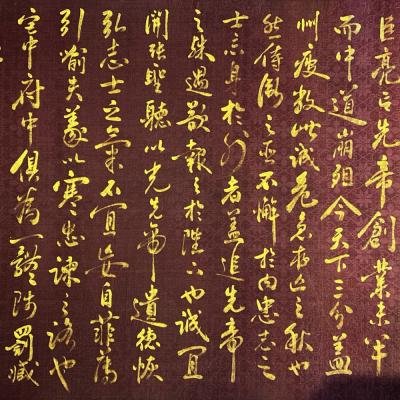 臣亮言先帝創業未半
而中道崩殂今天下三分益
州疲敝此誠危急存亡之秋也
然侍衛之臣不懈於內忠志之
士忘身於外者蓋追先帝
之殊遇欲報之於陛下也誠宜
開張聖聽以光先帝遺德恢
弘志士之氣不宜妄自菲薄
引喻失義以塞忠諫之路也
宮中府中俱為一體陟罰臧